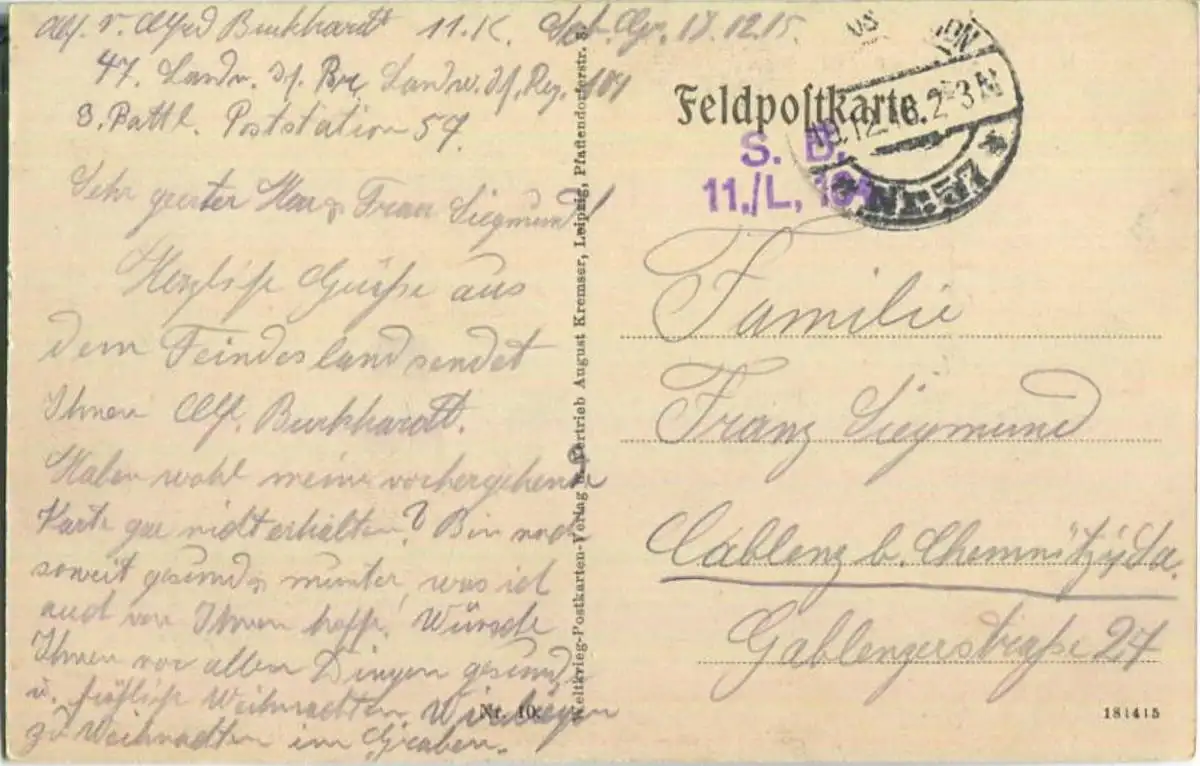 Abs. v. Alfred Burkhardt 11. K. Sch. Gr. 18.12.15.
47. Landw. Df. Br. Landw. Jf. Reg. 104
3. Battl. Poststation 57.
Sehr geerter Herr u. Frau Siegmund!
Herzliche Grüße aus
dem Feindesland sendet
Ihnen Alf. Burkhardt.
Haben wohl meine vorhergehende
Karte gar nicht erhalten? Bin noch
soweit gesund u. munter, was ich
auch von Ihnen hoffe. Wünsche
Ihnen vor allen Dingen gesunde
u. fröhliche Weihnachten. Wir liegen
zu Weihnachten im Graben.
Weltkrieg-Postkarten-Verlag u. Vertrieb August Kremser, Leipzig, Pfaffendorferstr. 8.
Nr. 10.
Feldpostkarte
S. B.
11./L. 104
12. 2-3 N
Nr. 57
Familie
Franz Siegmund
Gablenz b. Chemnitz i/Sa.
Gablenzerstraße 27
181415